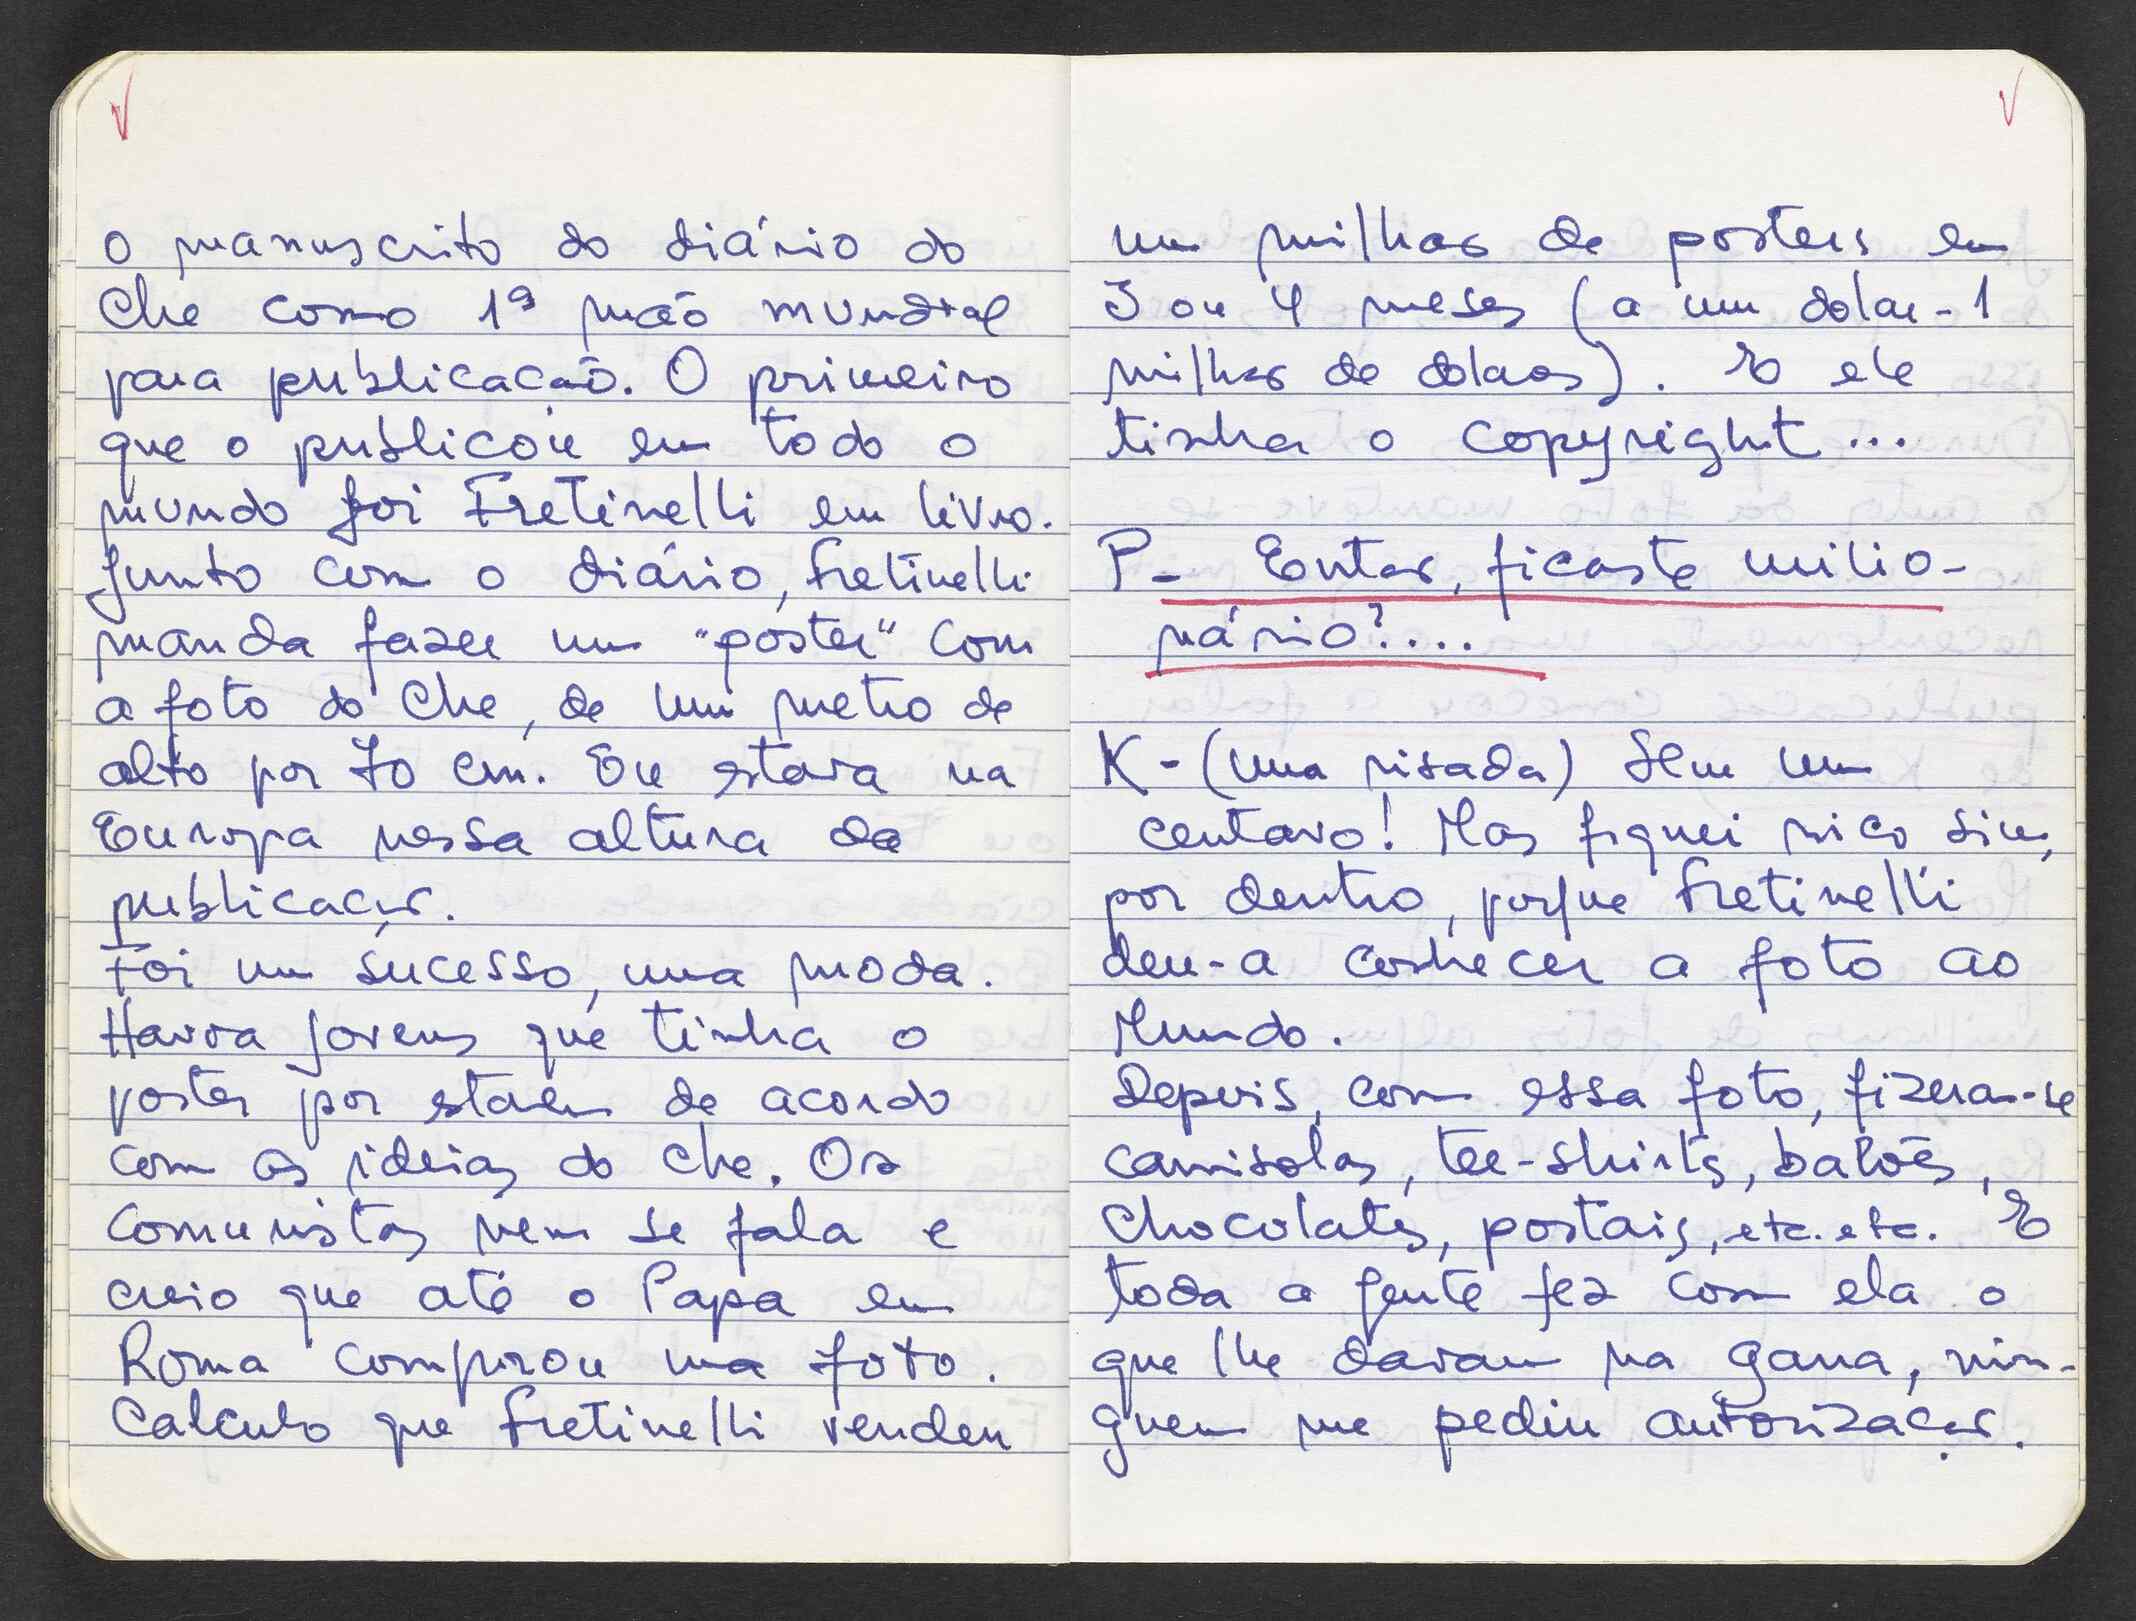 o manuscrito do diário do
Che como 1ª mão mundial
para publicação. O primeiro
que o publicou em todo o
mundo foi Fretinelli em livro.
Junto com o diário, Fretinelli
manda fazer um "poster" com
a foto do Che, de um metro de
alto por 70 cm. Eu estava na
Europa nessa altura da
publicação.
Foi um sucesso, uma moda.
Havia jovens que tinha o
poster por estarem de acordo
com as ideias do Che. Os
comunistas nem se fala e
creio que até o Papa em
Roma comprou uma foto.
Calculo que Fretinelli vendeu
um milhão de posters em
3 ou 4 meses (a um dolar - 1
milhão de dolares). E ele
tinha o copyright...
P- Então, ficaste milio-
nário?....
K - (uma risada) Sem um
centavo! Mas fiquei rico sim,
por dentro, porque Fretinelli
deu-a conhecer a foto ao
Mundo.
Depois, com essa foto, fizeram-se
camisolas, tee-shirts, balões,
chocolates, postais, etc. etc. E
toda a gente fez com ela o
que lhe davam na gana, nin-
guem me pediu autorização.